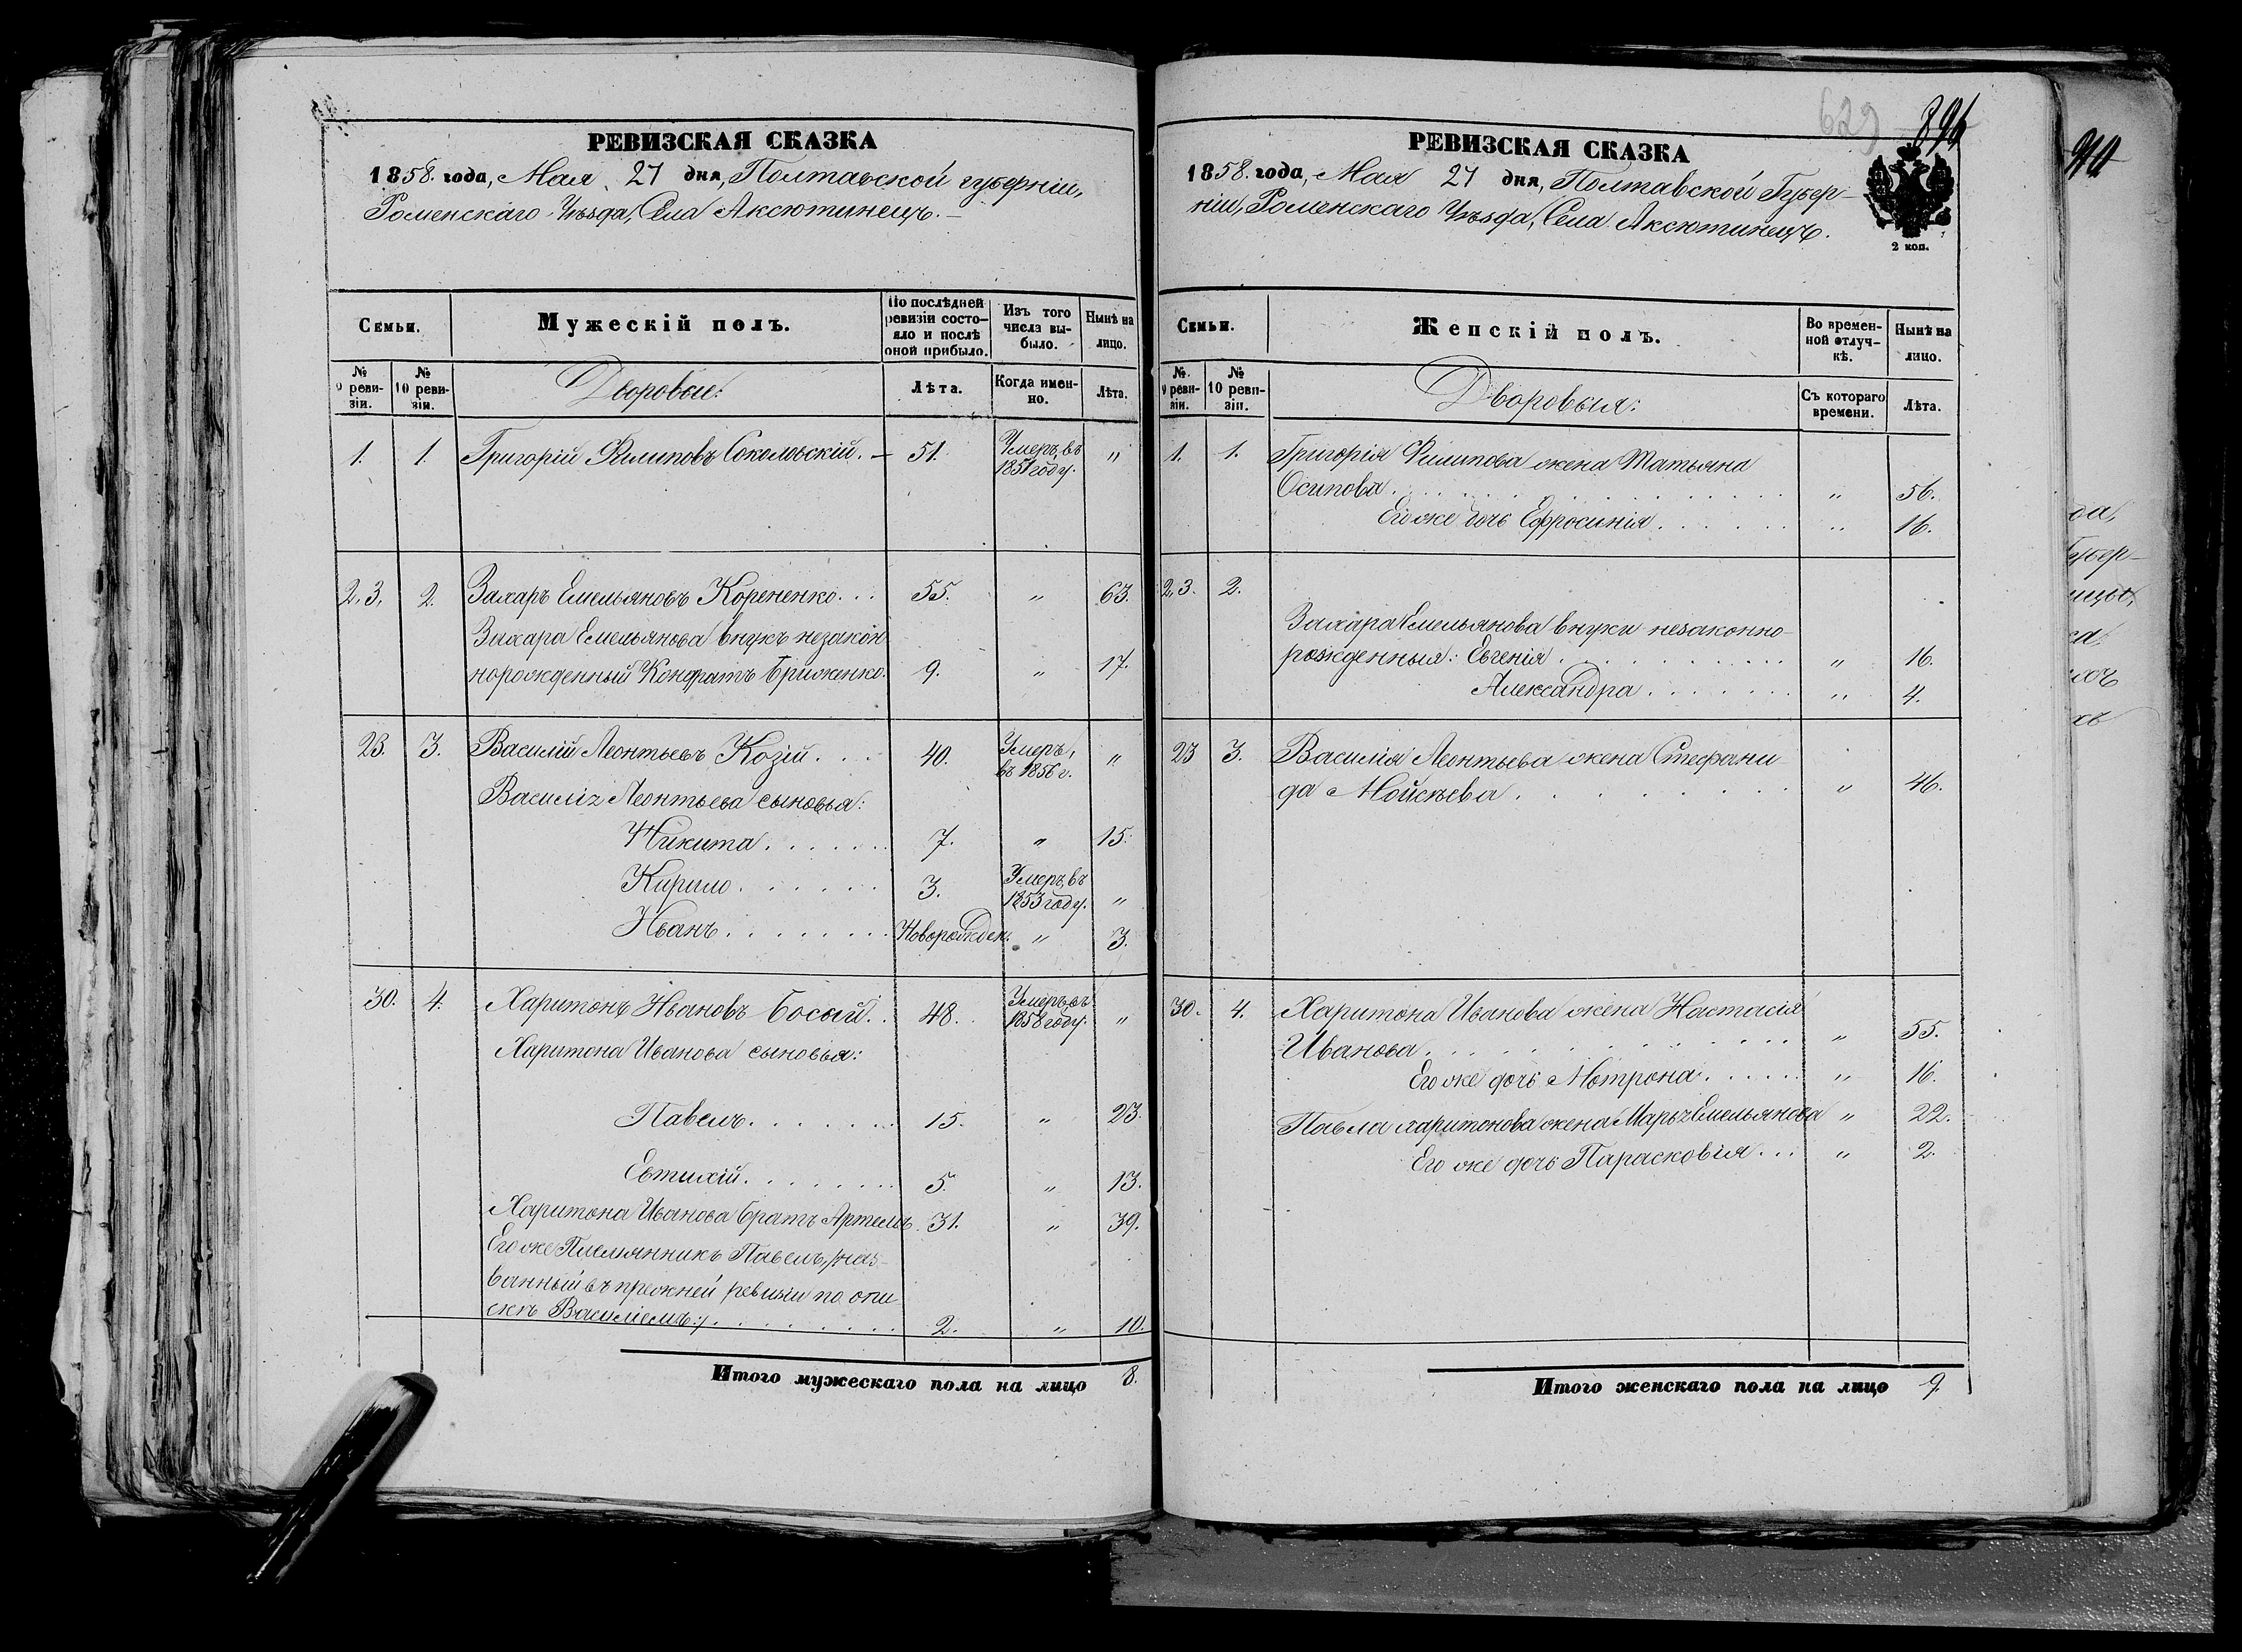 РЕВИЗСКАЯ СКАЗКА
1858. года, Мая 27 дня, Полтавской губерніи,
Роменскаго Уѣзда, Села Аксютинецъ.
Семьи.
Мужескій полъ.
По послѣдней ревизіи состояло и послѣ оной прибыло.
Изъ того числа выбыло.
Нынѣ на лицо.
№ 9 ревизіи.
№ 10 ревизіи.
Дворовые:
Лѣта.
Когда именно.
Лѣта.
1. 1. Григорій Филиповъ Соколовскій. — 51. Умеръ, въ 1851 году. „
2,3. 2. Захаръ Емельяновъ Корененко... 55. „ 63.
Захара Емельянова внукъ незакон
норожденный Кондратъ 9. „ 17.
23. 3. Василій Леонтьевъ Козій... 40. Умеръ, въ 1856 г. „
Василія Леонтьева сыновья:
Никита....... 7. „ 15.
Кирило....... 3. Умеръ, въ 1853 году. „
Иванъ....... Новорожден. „ 3.
30. 4. Харитонъ Ивановъ Босый.. 48. Умеръ въ 1858 году. „
Харитона Иванова сыновья:
Павелъ....... 15. „ 23.
Евтихій....... 5. „ 13.
Харитона Иванова братъ Артемъ 31. „ 39.
Его же Племянникъ Павелъ, /наз-
ванный въ прежней ревизіи по опи
скѣ Василіемъ:/......... 2. „ 10.
Итого мужескаго пола на лицо 8.
629 896
РЕВИЗСКАЯ СКАЗКА
1858. года, Мая 27 дня, Полтавской Губер-
ніи, Роменскаго Уѣзда, Села Аксютинецъ.
2 коп.
Семьи.
Женскій полъ.
Во временной отлучкѣ.
Нынѣ на лицо.
№ 9 ревизіи.
№ 10 ревизіи.
Дворовыя:
Съ котораго времени.
Лѣта.
1. 1. Григорія Филипова жена Татьяна
Осипова........... „ 56.
Его же дочь Ефросинія...... „ 16.
2,3. 2.
Захара Емельянова внуки незаконно-
рожденныя: Евгенія.......... „ 16.
Александра....... „ 4.
23 3. Василія Леонтьева жена Стефани
да Мойсѣева......... „ 46.
30. 4. Харитона Иванова жена Настасія
Иванова............ „ 55.
Его же дочь Мотрона...... „ 16.
Павла Харитонова жена Марья Емельянова „ 22.
Его же дочь Парасковія... „ 2.
Итого женскаго пола на лицо 9.
да,
Губер-